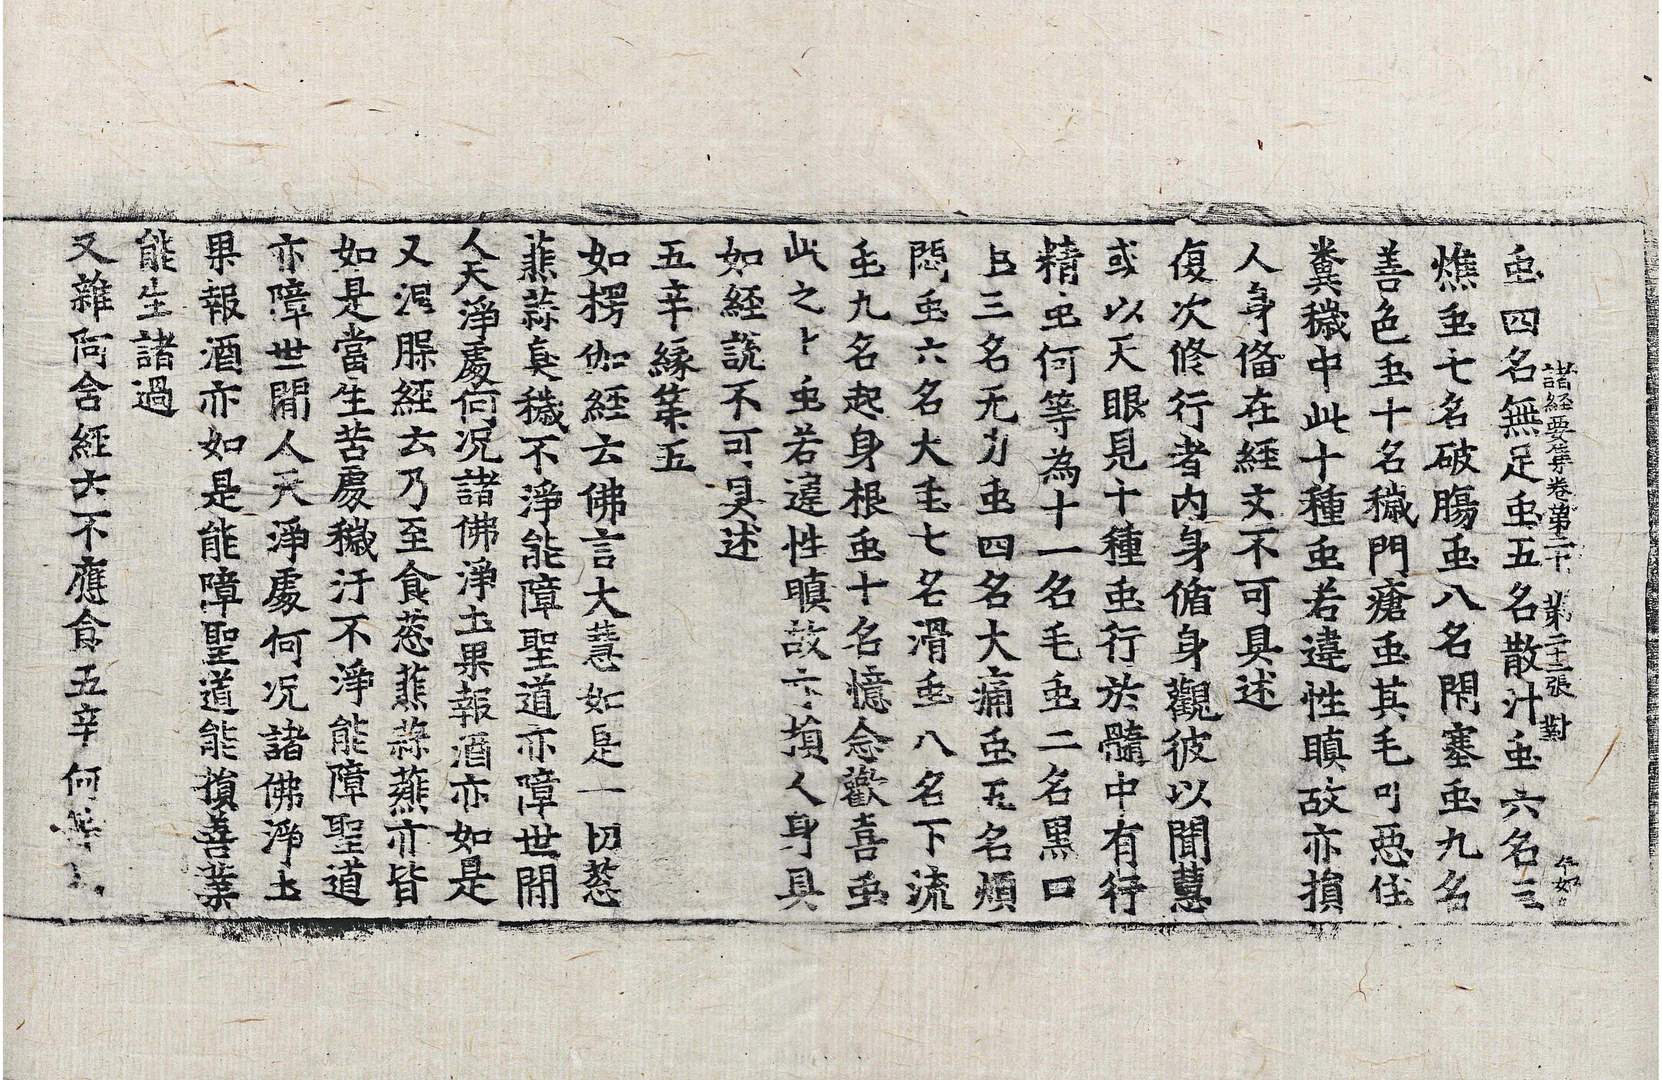 諸經要集卷第二十 第二十二張 對
虫四名無足虫五名散汁虫六名三
燋虫七名破膓虫八名閇塞虫九名
善色虫十名穢門瘡虫其毛可惡住
糞穢中此十種虫若違性瞋故亦損
人身俻在經文不可具述
復次修行者内身循身觀彼以聞慧
或以天眼見十種虫行於髓中有行
精虫何等為十一名毛虫二名黒口
虫三名无力虫四名大痛虫五名煩
悶虫六名大虫七名滑虫八名下流
虫九名起身根虫十名憶念歡喜虫
此之十虫若違性瞋故亦損人身具
如經說不可具述
五辛緣第五
如楞伽經云佛言大慧如是一切葱
韮蒜臭穢不淨能障聖道亦障世閒
人天淨處何况諸佛淨土果報酒亦如是
又涅脲經云乃至食葱韮蒜薤亦皆
如是當生苦處穢汙不淨能障聖道
亦障世閒人天淨處何况諸佛淨土
果報酒亦如是能障聖道能損善業
能生諸過
又雜阿含經云不應食五辛何